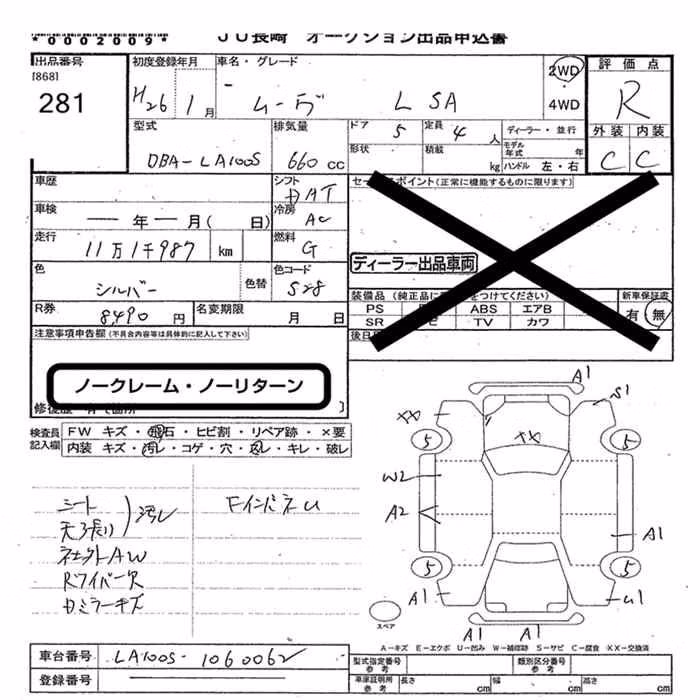 *0002009*
JU長崎 オークション出品申込書
出品番号
[868]
281
初度登録年月
H26 1月
車名・グレード
ムーヴ L SA
2WD
4WD
評価点
R
外装 内装
C C
型式
DBA-LA100S
排気量
660 cc
ドア 5
定員 4 人
形状
積載 kg
ディーラー・並行
モデル年式 年
ハンドル 左・右
車歴
シフト
車検
年 月( 日)
冷房
AC
走行
11万1千987 km
燃料
G
色
シルバー
色替
色コード
S28
R券
8490 円
名変期限
月 日
セールスポイント(正常に機能するものに限ります)
ディーラー出品車両
装備品(純正品に をつけてください)
PS ABS エアB
SR TV カワ
新車保証書
有 無
後日
注意事項申告欄(不具合内容等は具体的に記入して下さい)
ノークレーム・ノーリターン
検査員記入欄
FW キズ・飛石・ヒビ割・リペア跡・×要
内装 キズ・汚レ・コゲ・穴・スレ・キレ・破レ
シート
天張り
汚レ
社外AW
Rワイパー欠
Fインパネ U
A1
S1
XX
XX
5
5
W2
A2
A1
5
5
A1
U1
A1
A1
スペア
A-キズ E-エクボ U-凹み W-補修跡 S-サビ C-腐食 XX-交換済
車台番号
LA100S-1060062
登録番号
型式指定番号
参考
類別区分番号
参考
車庫証明用
参考
長さ cm
幅 cm
高さ cm